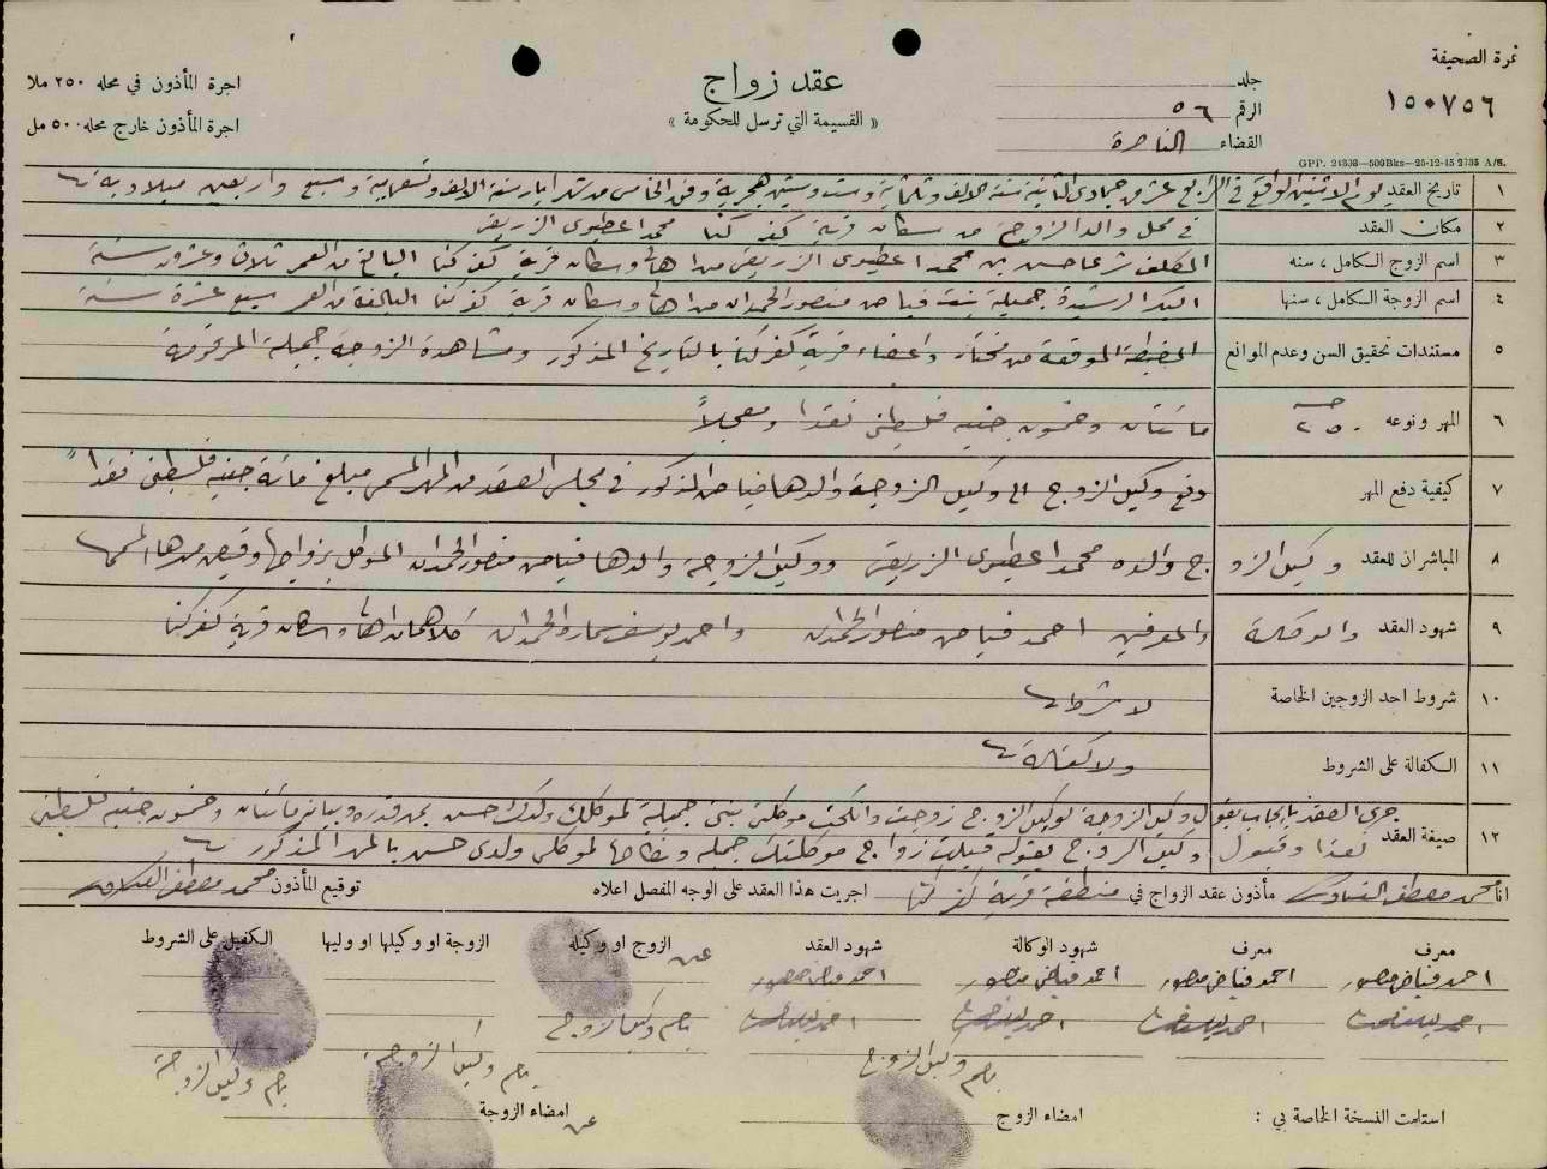 نمرة الصحيفة
١٥٠٧٥٦
جلد
الرقم ٥٦
القضاء الناصرة
عقد زواج
« القسيمة التي ترسل للحكومة »
اجرة المأذون في محله ٢٥٠ ملا
اجرة المأذون خارج محله ٥٠٠ مل
GPP. 21303—500Bks—28-12-45 2735 A/S.
١ تاريخ العقد يوم الاثنين الواقع في الرابع عشر من جمادى الثانية سنة الالف وثلثماية وست وستين هجرية وفق الخامس من شهر ايار سنة الالف وتسعماية وسبع واربعين ميلادية
٢ مكان العقد في محل والد الزوج من سكان قرية كفر كنا محمد اعطيوى الزريقي
٣ اسم الزوج الكامل ، سنه المكلف شرعا حسن بن محمد اعطيوى الزريقي من اهالي وسكان قرية كفر كنا البالغ من العمر ثلاث وعشرون سنة
٤ اسم الزوجة الكامل ، سنها البكر الرشيدة جميلة بنت فياض منصور الحمدان من اهالي وسكان قرية كفر كنا البالغة من العمر سبع عشرة سنة
٥ مستندات تحقيق السن وعدم الموانع المضبطة الموقعة من مختار واعضاء قرية كفر كنا بالتاريخ المذكور ومشاهدة الزوجة جميلة المرقومة
٦ المهر ونوعه ٢٥٠ مائتان وخمسون جنيه فلسطيني نقدا ومعجلاً
٧ كيفية دفع المهر دفع وكيل الزوج الى وكيل الزوجة والدها فياض المذكور في مجلس العقد من المهر المسمى مبلغ مائة جنيه فلسطيني نقداً
٨ المباشران للعقد وكيل الزوج والده محمد اعطيوى الزريقي ووكيل الزوجة والدها فياض منصور الحمدان الموكل بزواجها وقبض مهرها المسمى
٩ شهود العقد والوكالة والمعرفين احمد فياض منصور الحمدان واحمد يوسف الحمدان كلاهما من اهالي وسكان قرية كفر كنا
١٠ شروط احد الزوجين الخاصة لا شرط
١١ الكفالة على الشروط ولا كفالة
١٢ صيغة العقد جرى العقد بايجاب بقول وكيل الزوجة لوكيل الزوج زوجت وانكحت موكلتي بنتي جميلة لموكلك ولدك حسن بمهر قدره وبيانه مائتان وخمسون جنيه فلسطيني
نقدا وقبول وكيل الزوج بقوله قبلت زواج موكلتك جميلة ونكاحها لموكلي ولدي حسن بالمهر المذكور
انا محمد مصطفى مأذون عقد الزواج في منطقة قرية كفر كنا اجريت هذا العقد على الوجه المفصل اعلاه توقيع المأذون محمد مصطفى
معرف معرف شهود الوكالة شهود العقد عن الزوج او وكيله الزوجة او وكيلها او وليها الكفيل على الشروط
احمد فياض منصور احمد فياض منصور احمد فياض منصور احمد فياض منصور
بصم وكيل الزوج
بصم وكيل الزوج بصم وكيل الزوجة بصم وكيل الزوجة
استلمت النسخة الخاصة بي : امضاء الزوج عن امضاء الزوجة